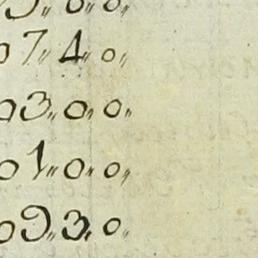 07〃4〃0〃
03〃0〃0〃
01〃0〃0〃
09〃3〃0〃